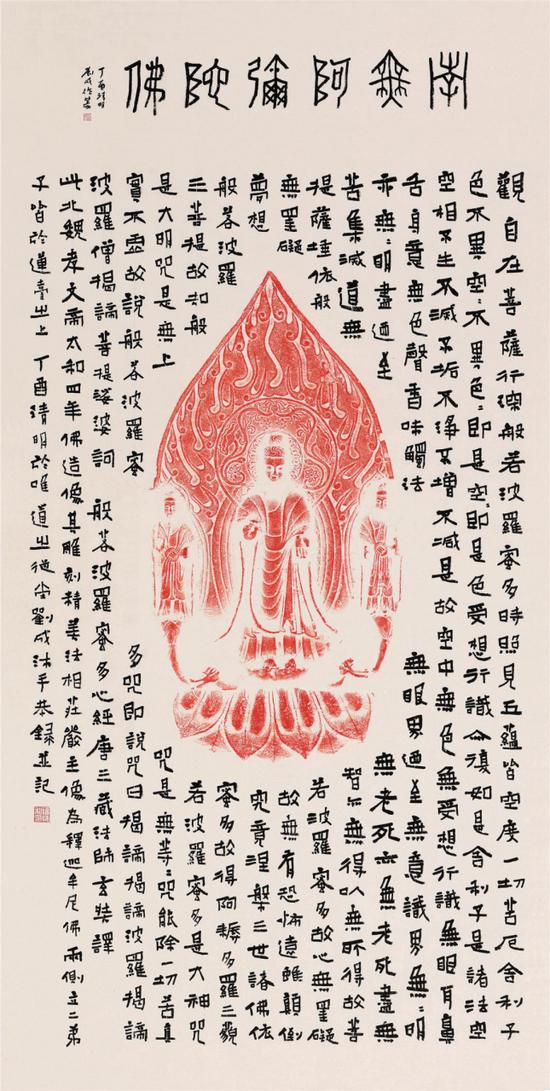 南無阿彌陀佛
丁酉清明
觀自在菩薩行深般若波羅蜜多時照見五蘊皆空度一切苦厄舍利子
色不異空〻不異色〻即是空〻即是色受想行識亦復如是舍利子是諸法空
空相不生不滅不垢不淨不增不減是故空中無色無受想行識無眼耳鼻
舌身意無色聲香味觸法 無眼界迺至無意識界無〻明
亦無〻明盡迺至 無老死亦無老死盡無
苦集滅道無 智亦無得以無所得故菩
提薩埵依般 若波羅蜜多故心無罣礙
無罣礙 故無有恐怖遠離顛倒
夢想 究竟涅槃三世諸佛依
般若波羅 蜜多故得阿耨多羅三藐
三菩提故知般 若波羅蜜多是大神咒
是大明咒是無上 咒是無等〻咒能除一切苦真
實不虛故說般若波羅蜜 多咒即說咒曰揭諦揭諦波羅揭諦
波羅僧揭諦菩提娑婆訶 般若波羅蜜多心經唐三藏法師玄奘譯
此北魏孝文帝太和四年佛造像其雕刻精美法相莊嚴主像為釋迦牟尼佛兩側立二弟
子皆於蓮臺之上 丁酉清明於唯道之從齋劉成沐手恭錄並記